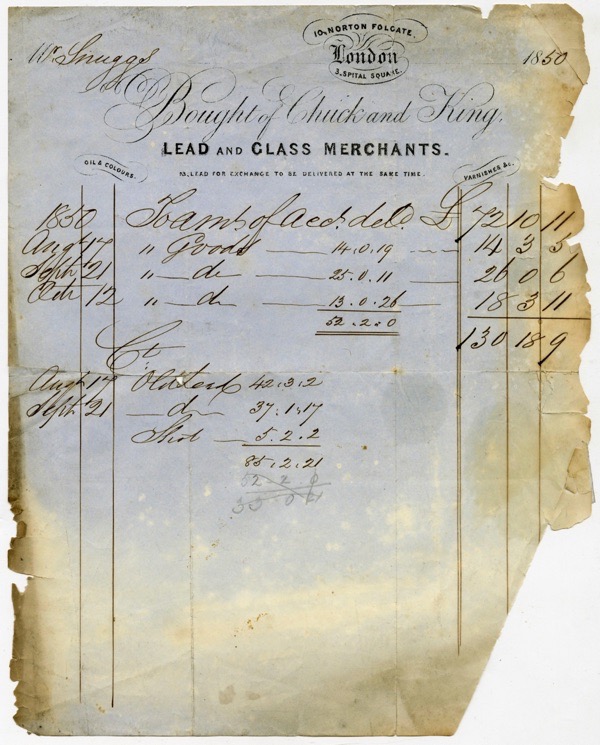 10, NORTON FOLGATE.
London
3, SPITAL SQUARE.
Mr. Snuggs 1850
Bought of Chuick and King.
LEAD AND GLASS MERCHANTS.
OIL & COLOURS. VARNISHES &c.
LEAD FOR EXCHANGE TO BE DELIVERED AT THE SAME TIME.
1850 To amt. of acct. deld. £ 72 10 11
Augt 17 " Goods 14.0.19 14 3 5
Septr 21 " do 25.0.11 26 0 6
Octr 12 " do 13.0.26 18 3 11
52.2.0 130 18 9
Cr
Augt 17 Old Lead 42.3.2
Septr 21 do 37.1.17
Shot 5.2.2
85.2.21
52 2 0
33 0 21